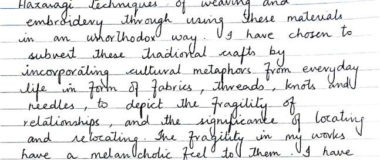 Hazaragi techniques of weaving and
embroidery through using these materials
in an unorthodox way. I have chosen to
subvert these tradional crafts by
incorporating cultural metaphors from everyday
life in form of fabrics, threads, knots and
needles, to depict the fragility of
relationships, and the significance of locating
and relocating. The fragility in my works
have a melancholic feel to them. I have